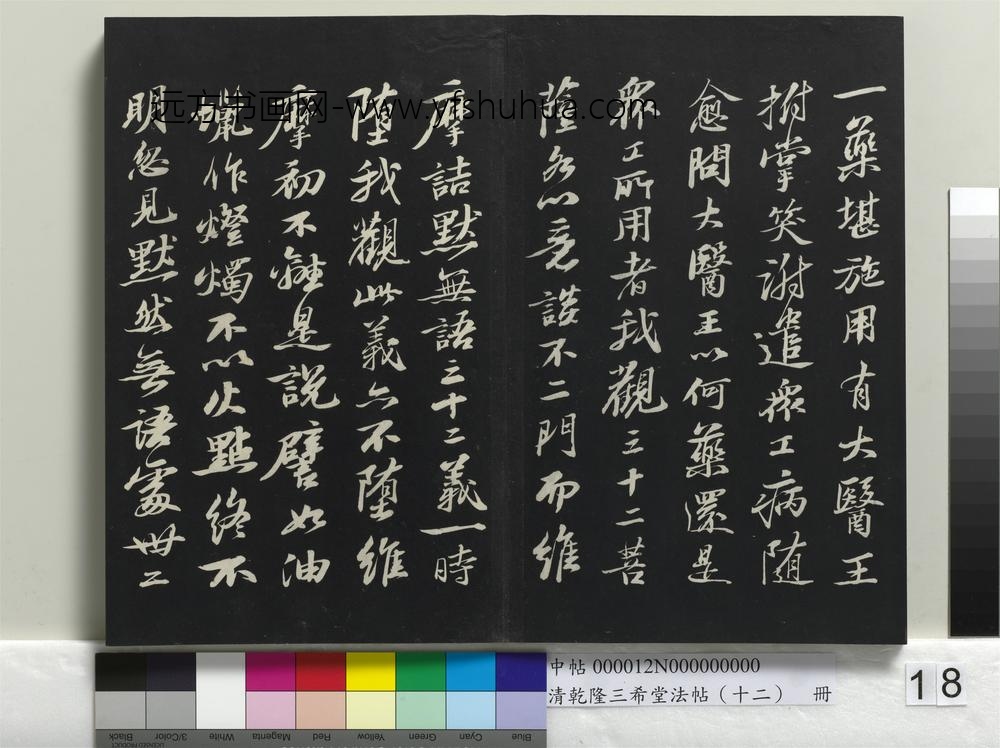 一藥堪施用有大醫王
拊掌笑謝遣衆工病隨
愈問大醫王以何藥還是
衆工所用者我觀三十二菩
薩各以意談不二門而維
摩詰默無語三十二義一時
墮我觀此義亦不墮維
摩初不離是說譬如油
蠟作燈燭不以火點終不
明忽見默然無語處卅二
远方书画网-www.yfshuhua.com
中帖 000012N000000000
清乾隆三希堂法帖（十二） 冊
18
Black 3/Color White Magenta Red Yellow Green Cyan Blue